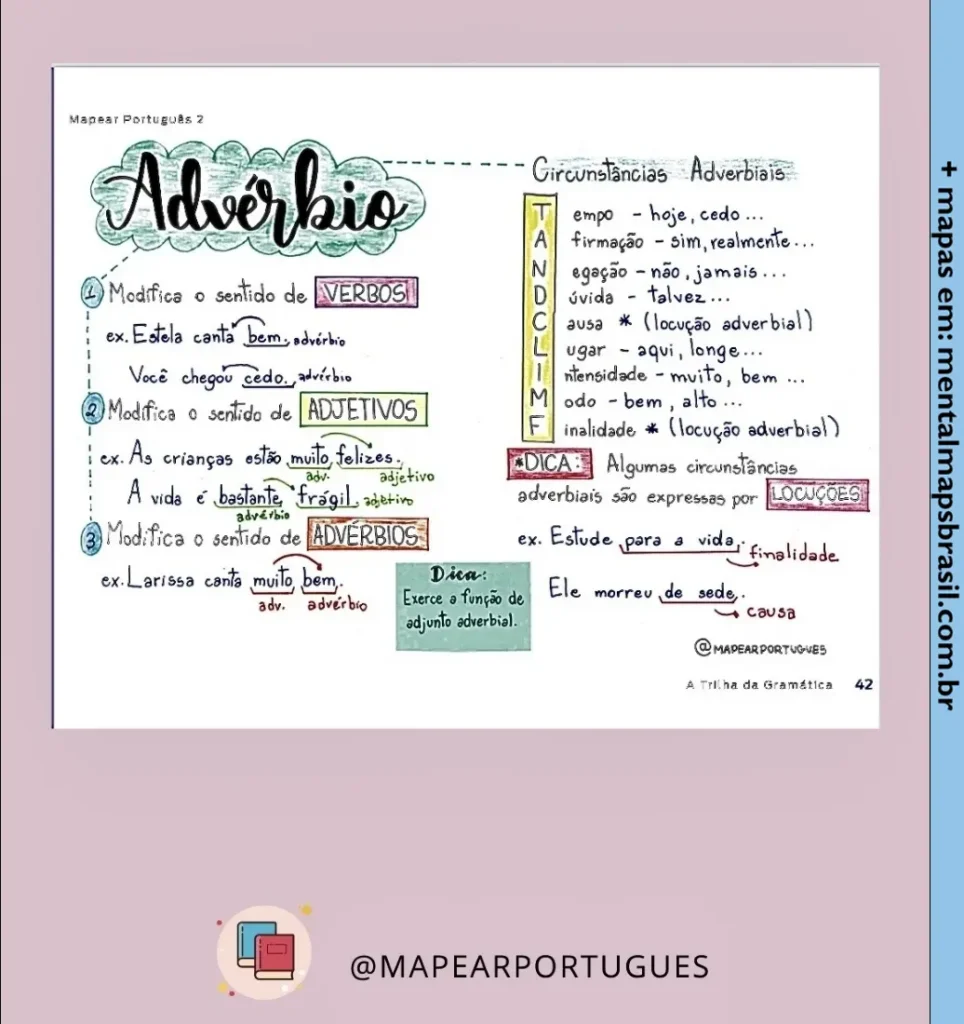 Mapear Português 2
Advérbio
1 Modifica o sentido de VERBOS
ex. Estela canta bem. advérbio
Você chegou cedo. advérbio
2 Modifica o sentido de ADJETIVOS
ex. As crianças estão muito felizes.
adv. adjetivo
A vida é bastante frágil. adjetivo
advérbio
3 Modifica o sentido de ADVÉRBIOS
ex. Larissa canta muito bem.
adv. advérbio
Dica:
Exerce a função de
adjunto adverbial.
Circunstâncias Adverbiais
Tempo - hoje, cedo ...
Afirmação - sim, realmente ...
Negação - não, jamais ...
Dúvida - talvez ...
Causa * (locução adverbial)
Lugar - aqui, longe ...
Intensidade - muito, bem ...
Modo - bem, alto ...
Finalidade * (locução adverbial)
*DICA: Algumas circunstâncias
adverbiais são expressas por LOCUÇÕES
ex. Estude para a vida.
finalidade
Ele morreu de sede.
causa
@MAPEARPORTUGUES
A Trilha da Gramática 42
@MAPEARPORTUGUES
+ mapas em: mentalmapsbrasil.com.br